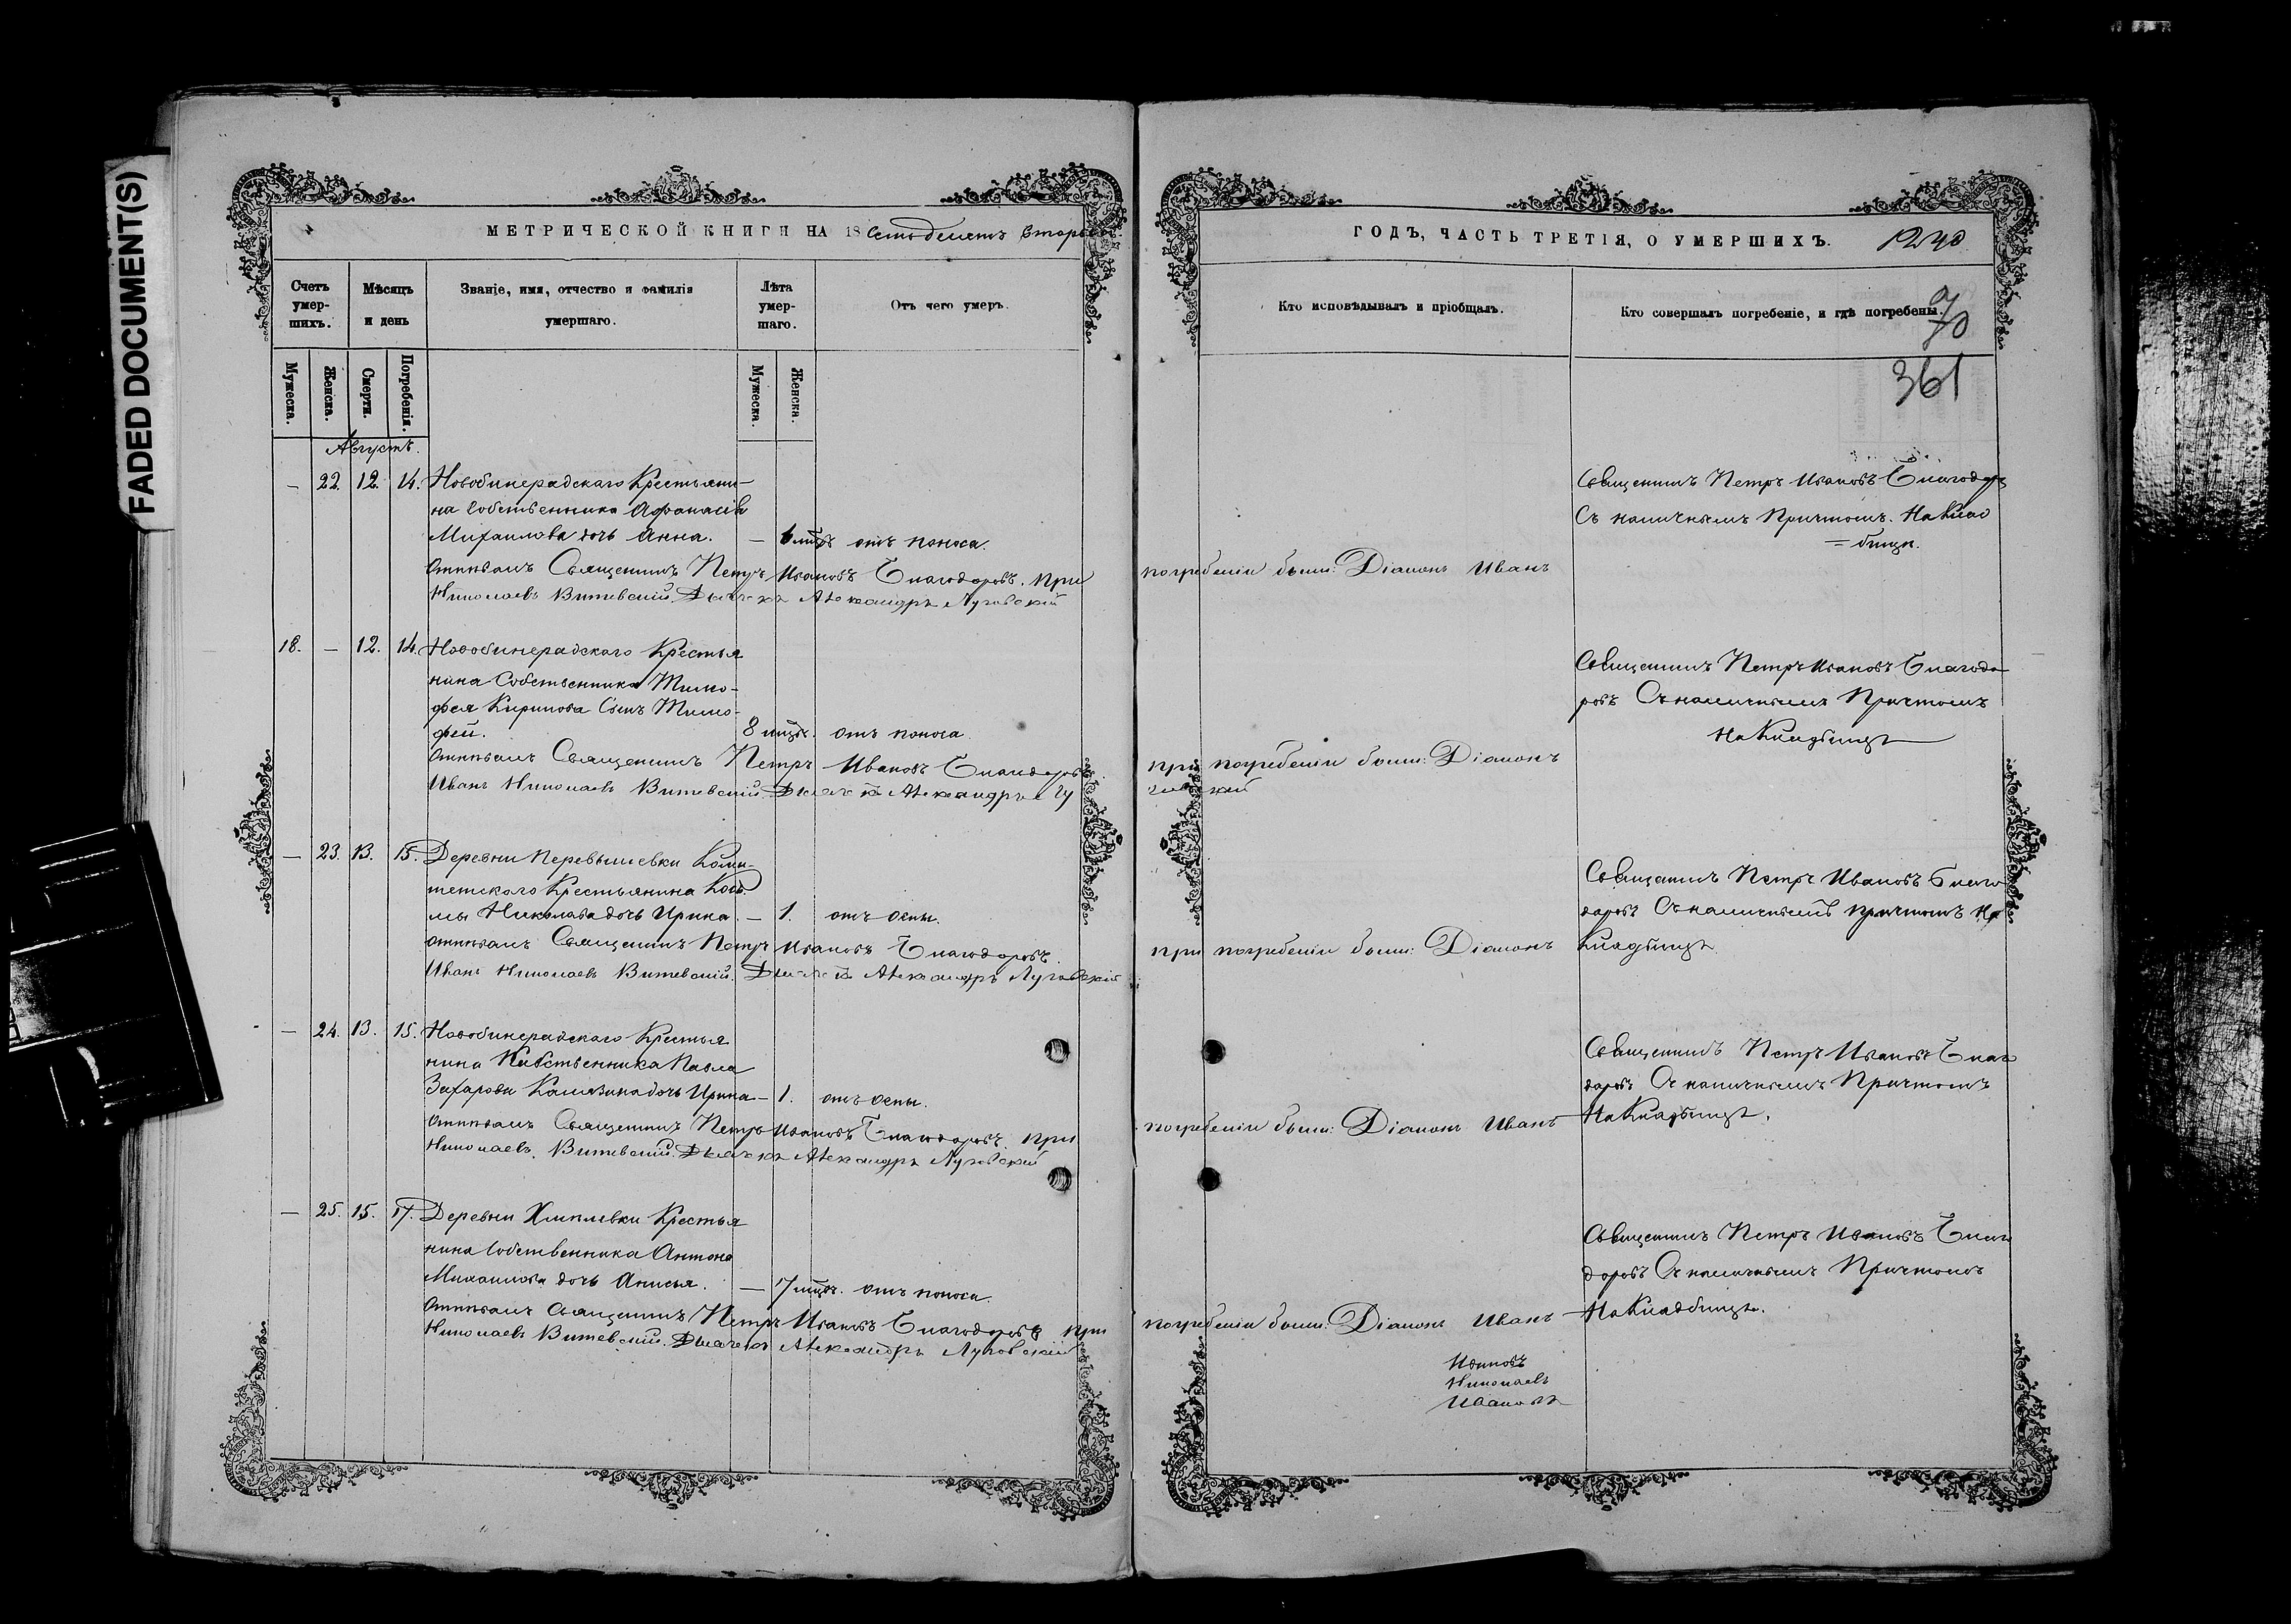 FADED DOCUMENT(S)
МЕТРИЧЕСКОЙ КНИГИ НА 18 Семьдесятъ Второй
Счетъ умер-шихъ.
Мѣсяцъ и день
Званіе, имя, отчество и фамилія умершаго.
Лѣта умер-шаго.
Отъ чего умеръ.
Мужеска.
Женска.
Смерти.
Погребенія.
Мужеска.
Женска.
Августъ.
– 22. 12. 14. Новобинарадскаго Крестьяни-
на Собственника Афанасія
Михаилова дочь Анна. – 6 мцъ отъ поноса.
Отпѣвалъ Священникъ Петръ Ивановъ Благодаровъ. при
Николаевъ Витевскій. Дьячекъ Александръ Луговскій
18. – 12. 14. Новобинарадскаго Крестья
нина Собственника Тимо-
фея Кирилова Сынъ Тимо-
фей. 8 мцъ. отъ поноса
Отпѣвалъ Священникъ Петръ Ивановъ Благодаровъ
Иванъ Николаевъ Витевскій. Дьячекъ Александръ Лу
– 23. 13. 15. Деревни
Крестьянина Козь
мы Николаева дочь Ирина. – 1. отъ оспы.
Отпѣвалъ Священникъ Петръ Ивановъ Благодаровъ.
Иванъ Николаевъ Витевскій. Дьячекъ Александръ Луговскій
– 24. 13. 15. Новобинарадскаго Крестья
нина Собственника Павла
Захарова дочь Ирина – 1. отъ оспы.
Отпѣвалъ Священникъ Петръ Ивановъ Благодаровъ. при
Николаевъ. Витевскій. Дьячекъ Александръ Луговскій
– 25. 15. 17. Деревни Крестья
нина Собственника Антона
Михаилова дочь Анисья. – 7 мцъ. отъ поноса.
Отпѣвалъ Священникъ Петръ Ивановъ Благодаровъ при
Николаевъ Витевскій. Дьячекъ Александръ Луговскій
ГОДЪ, ЧАСТЬ ТРЕТІЯ, О УМЕРШИХЪ. 1240
Кто исповѣдывалъ и пріобщалъ.
Кто совершалъ погребеніе, и гдѣ погребены.
361
Священникъ Петръ Ивановъ Благодаръ
Съ наличнымъ Причтомъ. На Клад
= бищѣ.
погребеніи были: Діаконъ Иванъ
Священникъ Петръ Ивановъ Благода
ровъ Съ наличнымъ Причтомъ
На Кладбищѣ
при погребеніи были: Діаконъ
говскій
Священникъ Петръ Ивановъ Благо
даровъ Съ наличнымъ причтомъ На
при погребеніи были: Діаконъ Кладбищѣ.
Священникъ Петръ Ивановъ Благо
даровъ Съ наличнымъ Причтомъ
На Кладбищѣ.
погребеніи были: Діаконъ Иванъ
Священникъ Петръ Ивановъ Благо
даровъ Съ наличнымъ Причтомъ
На Кладбищѣ.
погребеніи были: Діаконъ Иванъ
Николаевъ
Ивановъ